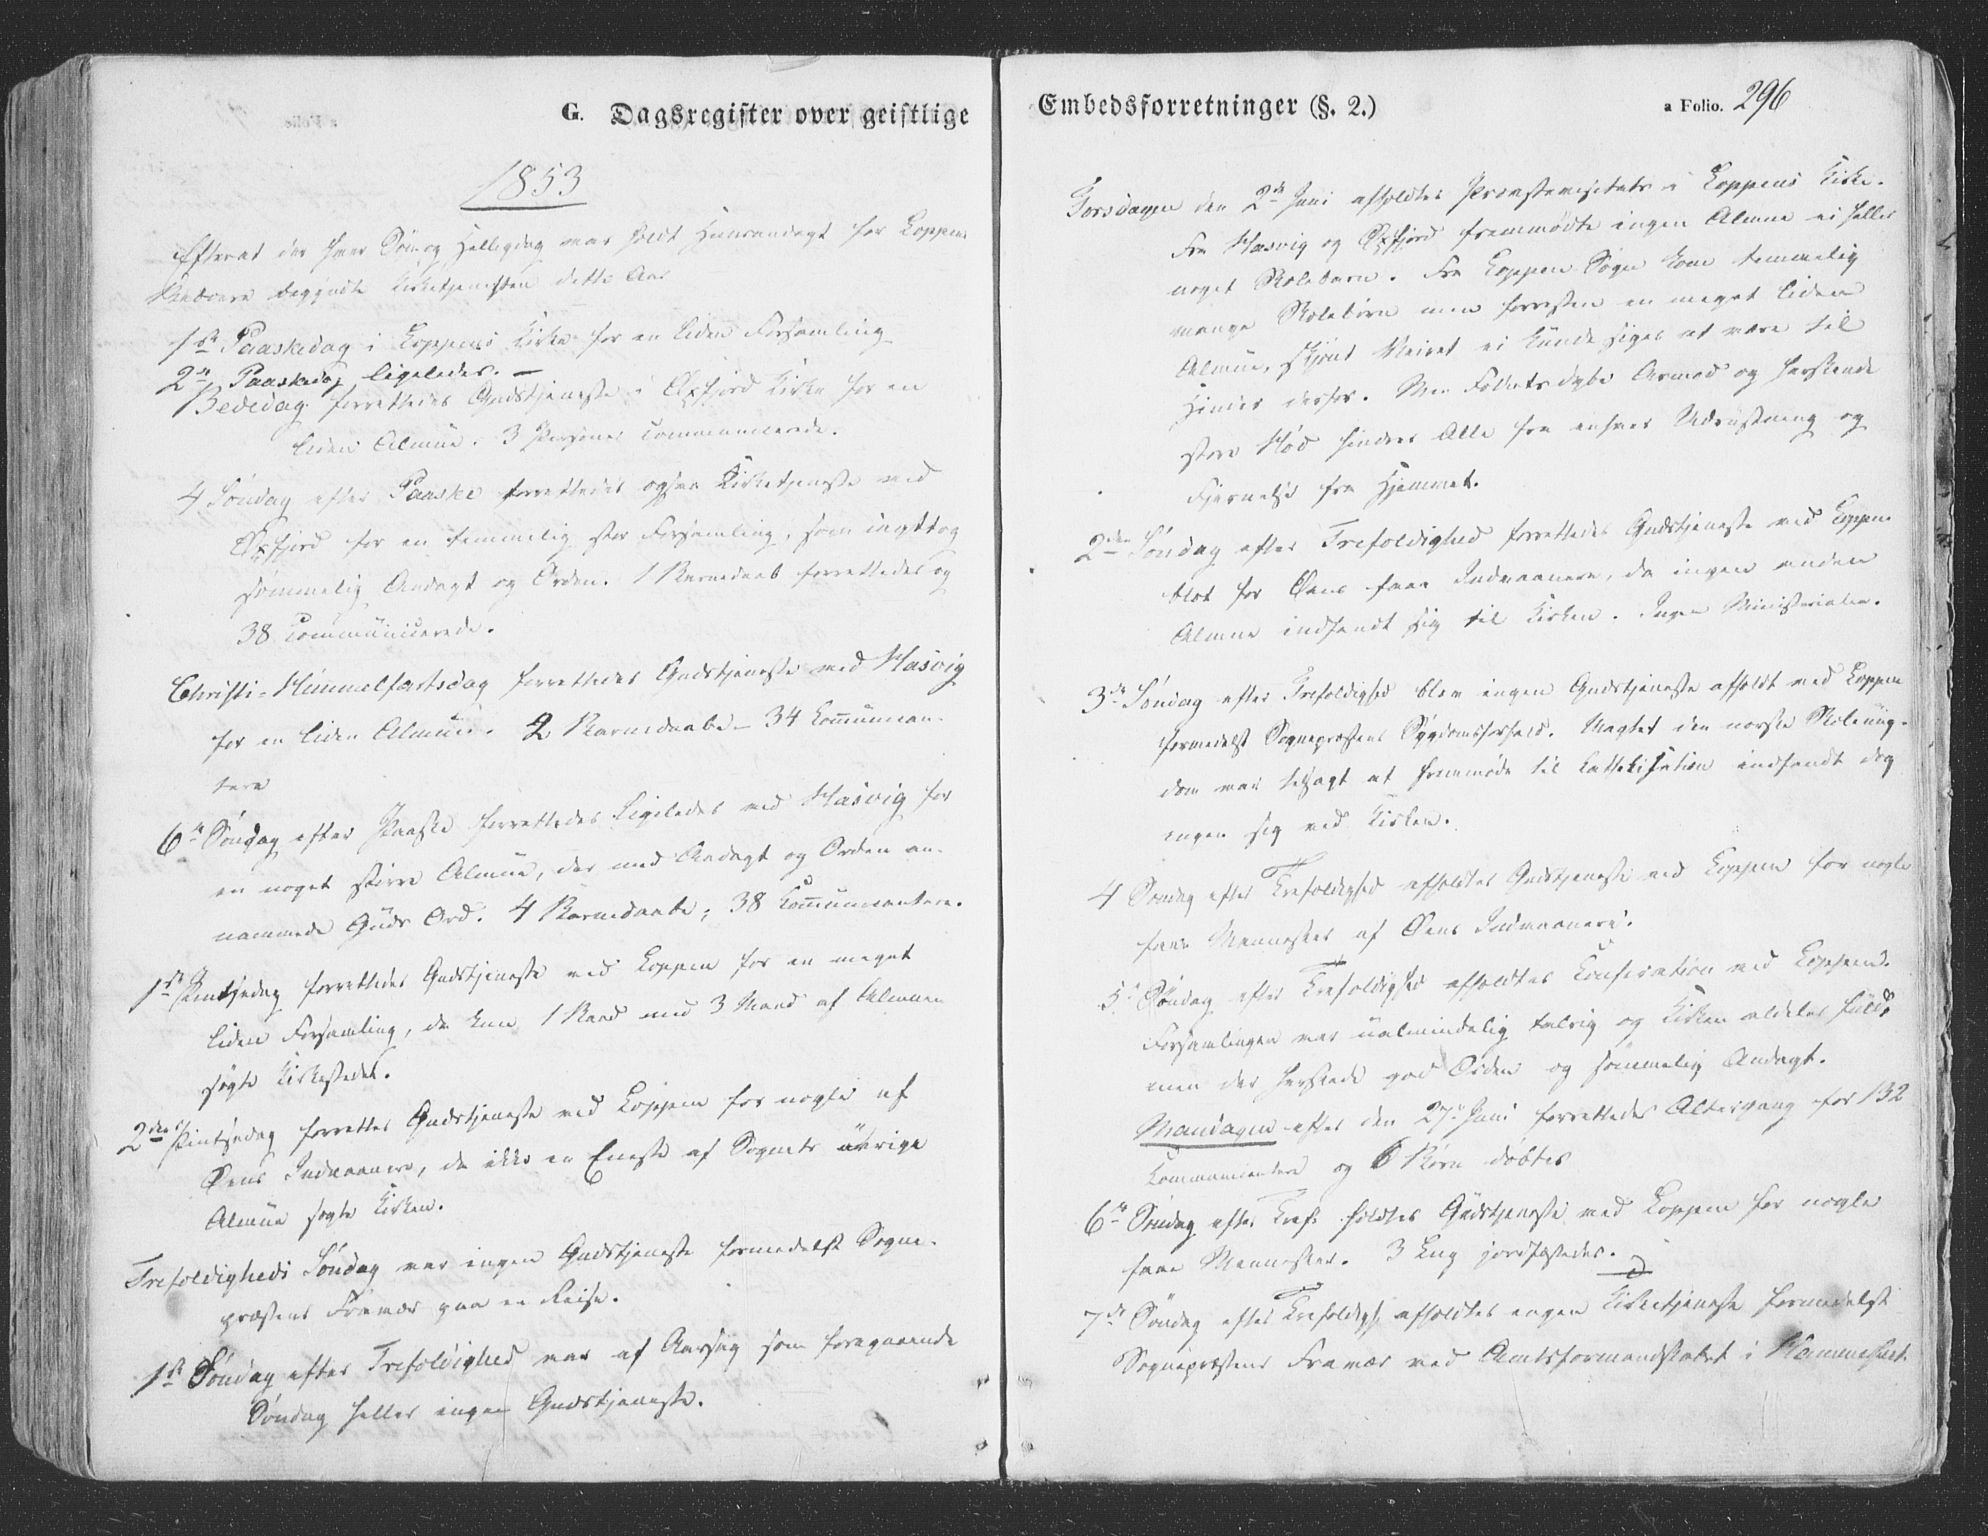 G. Dagsregister over geistlige
1853
Efterat der hver Søn og Helligdag var holdt Huusandagt for Loppens
Beboere begyndte Kirketjenesten dette Aar
1ste Paaskedag i Loppens Kirke for en liden Forsamling
2den Paaskedag ligeledes. –
Bededag forrettedes Gudstjeneste i Øxfjord Kirke for en
liden Almue. 3 Personer communicerede.
4 Søndag efter Paaske forrettedes ogsaa Kirketjeneste ved
Øxfjord for en temmelig stor Forsamling, som iagttog
sømmelig Andagt og Orden. 1 Barnedaab forrettedes og
38 Communicerede.
Christi-Himmelfartsdag forrettedes Gudstjeneste ved Hasvig
for en liden Almue. 2 Barnedaabe – 34 Communican-
tere
6te Søndag efter Paaske forrettedes ligeledes ved Hasvig for
en noget større Almue, der med Andagt og Orden an-
nammede Guds Ord. 4 Barnedaabe; 38 Communicantere.
1ste Pintsedag forrettedes Gudstjeneste ved Loppen for en meget
liden Forsamling, da kun 1 Baad med 3 Mand af Almuen
søgte Kirkestedet.
2den Pintsedag forrettes Gudstjeneste ved Loppen for nogle af
Øens Indvaanere, da ikke en Eneste af Sognets øvrige
Almue søgte Kirken.
Trefoldigheds Søndag var ingen Gudstjeneste formedelst Sogne-
præstens Fravær paa en Reise.
1ste Søndag efter Trefoldighed var af Aarsag som foregaaende
Søndag heller ingen Gudstjeneste.
Embedsforretninger (§. 2.)
a Folio. 296
Torsdagen den 2den Juni afholdtes Provstevisitats i Loppens Kirke.
Fra Hasvig og Øxfjord fremmødte ingen Almue ei heller
noget Skolebarn. Fra Loppen Sogn kom temmelig
mange Skolebørn men forresten en meget liden
Almue, skjønt Veiret ei kunde siges at være til
Hinder derfor. Men Folkets dybe Armod og herskende
store Nød hindrer Alle fra enhver Udrustning og
Fjernelse fra Hjemmet.
2den Søndag efter Trefoldighed forrettedes Gudstjeneste ved Loppen
blot for Øens faae Indvaanere, da ingen anden
Almue indfandt sig til Kirken. Ingen Ministerialia.
3de Søndag efter Trefoldighed blev ingen Gudstjeneste afholdt ved Loppen
formedelst Sognepræstens Sygdomsforfald. Uagtet den norske Skoleung-
dom var tilsagt at fremmøde til Cattekisation indfandt dog
ingen sig ved Kirken.
4 Søndag efter Trefoldighed afholdtes Gudstjeneste ved Loppen for nogle
faae Mennesker af Øens Indvaanere.
5te Søndag efter Trefoldighed afholdtes Confirmation ved Loppen.
Forsamlingen var ualmindelig talrig og Kirken aldeles fuld,
men der herskede god Orden og sømmelig Andagt.
Mandagen efter den 27de Juni forrettedes Altergang for 132
Kommunicantere og 6 Børn døbtes
6te Søndag efter Tref. holdtes Gudstjeneste ved Loppen for nogle
faae Mennesker. 3 Liig jordfæstedes.
7de Søndag efter Trefoldigh. afholdtes ingen Kirketjeneste formedelst
Sognepræstens Fravær ved Amtsformandskabet i Hammerfest.